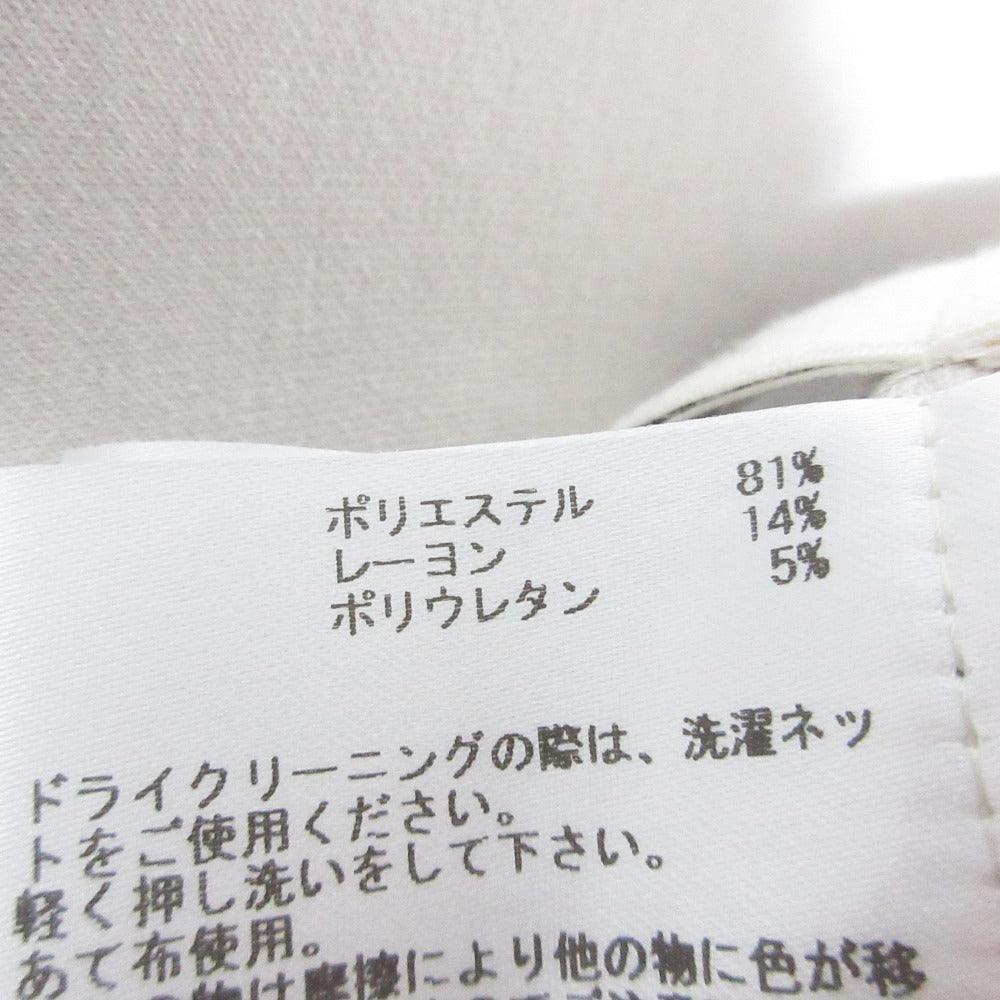 ポリエステル 81%
レーヨン 14%
ポリウレタン 5%
ドライクリーニングの際は、洗濯ネッ
トをご使用ください。
軽く押し洗いをして下さい。
あて布使用。
の物は摩擦により他の物に色が移